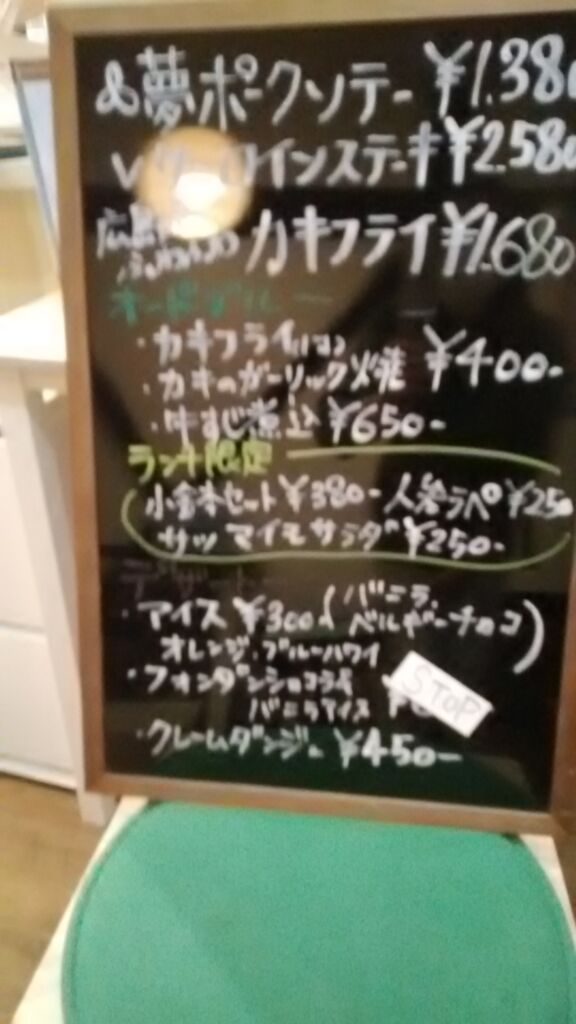 夢ポークソテー ¥1.380
ロインステーキ ¥2.580
広島 カキフライ ¥1.680
オードブル
・カキフライ
・カキのガーリック焼 ¥400-
・牛すじ煮込 ¥650-
ランチ限定
小鉢セット ¥380- 人参ラペ ¥250
サツマイモサラダ ¥250-
デザート
・アイス ¥300 (バニラ
ベルギーチョコ)
オレンジ・ブルーハワイ
・フォンダンショコラ
バニラアイス
STOP
・クレームダンジュ ¥450-